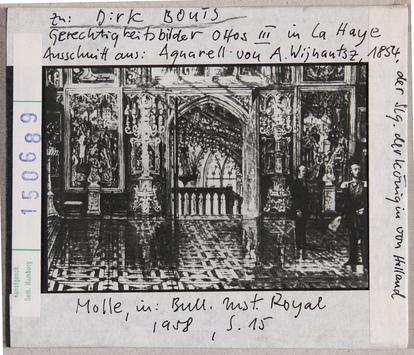 zu: Dirk BOUTS
Gerechtigkeitsbilder Ottos III in La Haye
Ausschnitt aus: Aquarell von A. Wijnantsz, 1854,
der Slg. der Königin von Holland
150689
Kunstgesch.
Sem. Hamburg
Molle, in: Bull. Inst. Royal
1958, S. 15